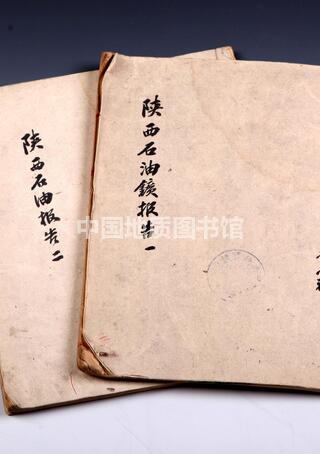 陕西石油鑛报告一
陕西石油报告二
中国地质图书馆